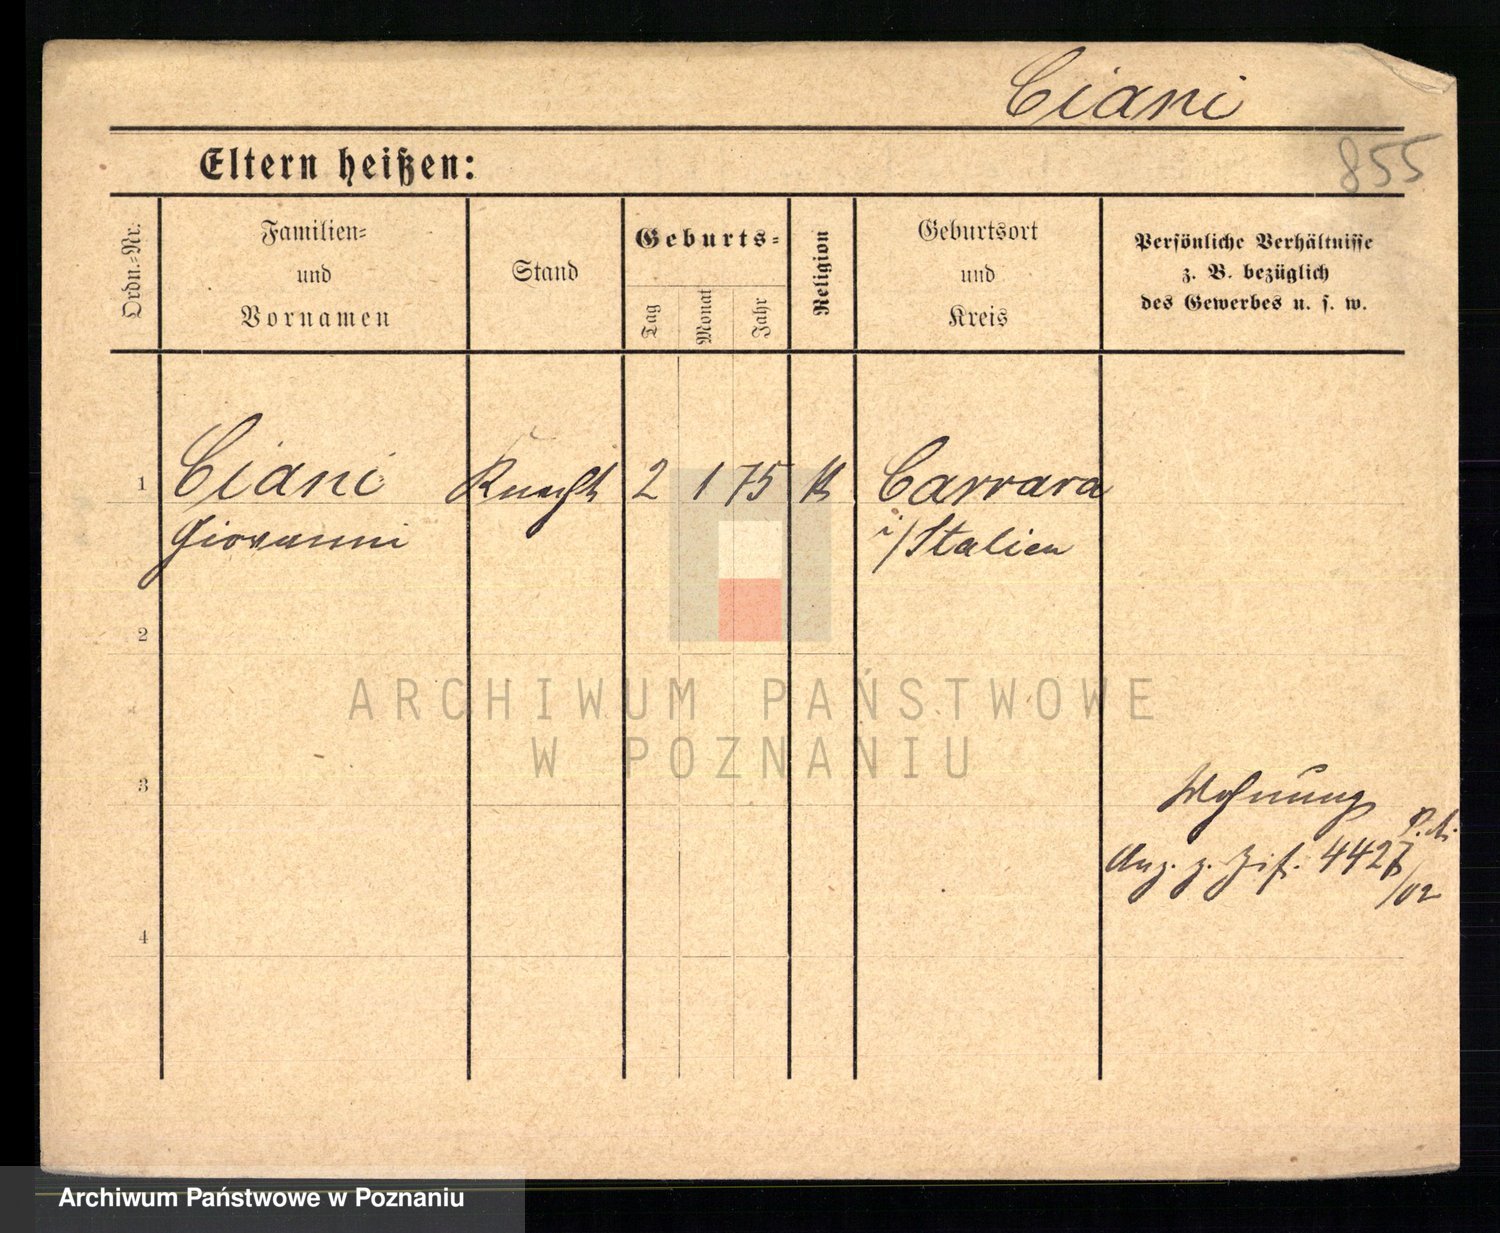 Ciani
855
Eltern heißen:
Ordn.-Nr.
Familien-
und
Vornamen
Stand
Geburts-
Tag
Monat
Jahr
Religion
Geburtsort
und
Kreis
Persönliche Verhältnisse
z. B. bezüglich
des Gewerbes u. s. w.
1
Ciani
Giovanni
2 1 75 k
Carrara
i/Italien
2
3
4
Wohnung
4427
/02
ARCHIWUM PAŃSTWOWE
W POZNANIU
Archiwum Państwowe w Poznaniu